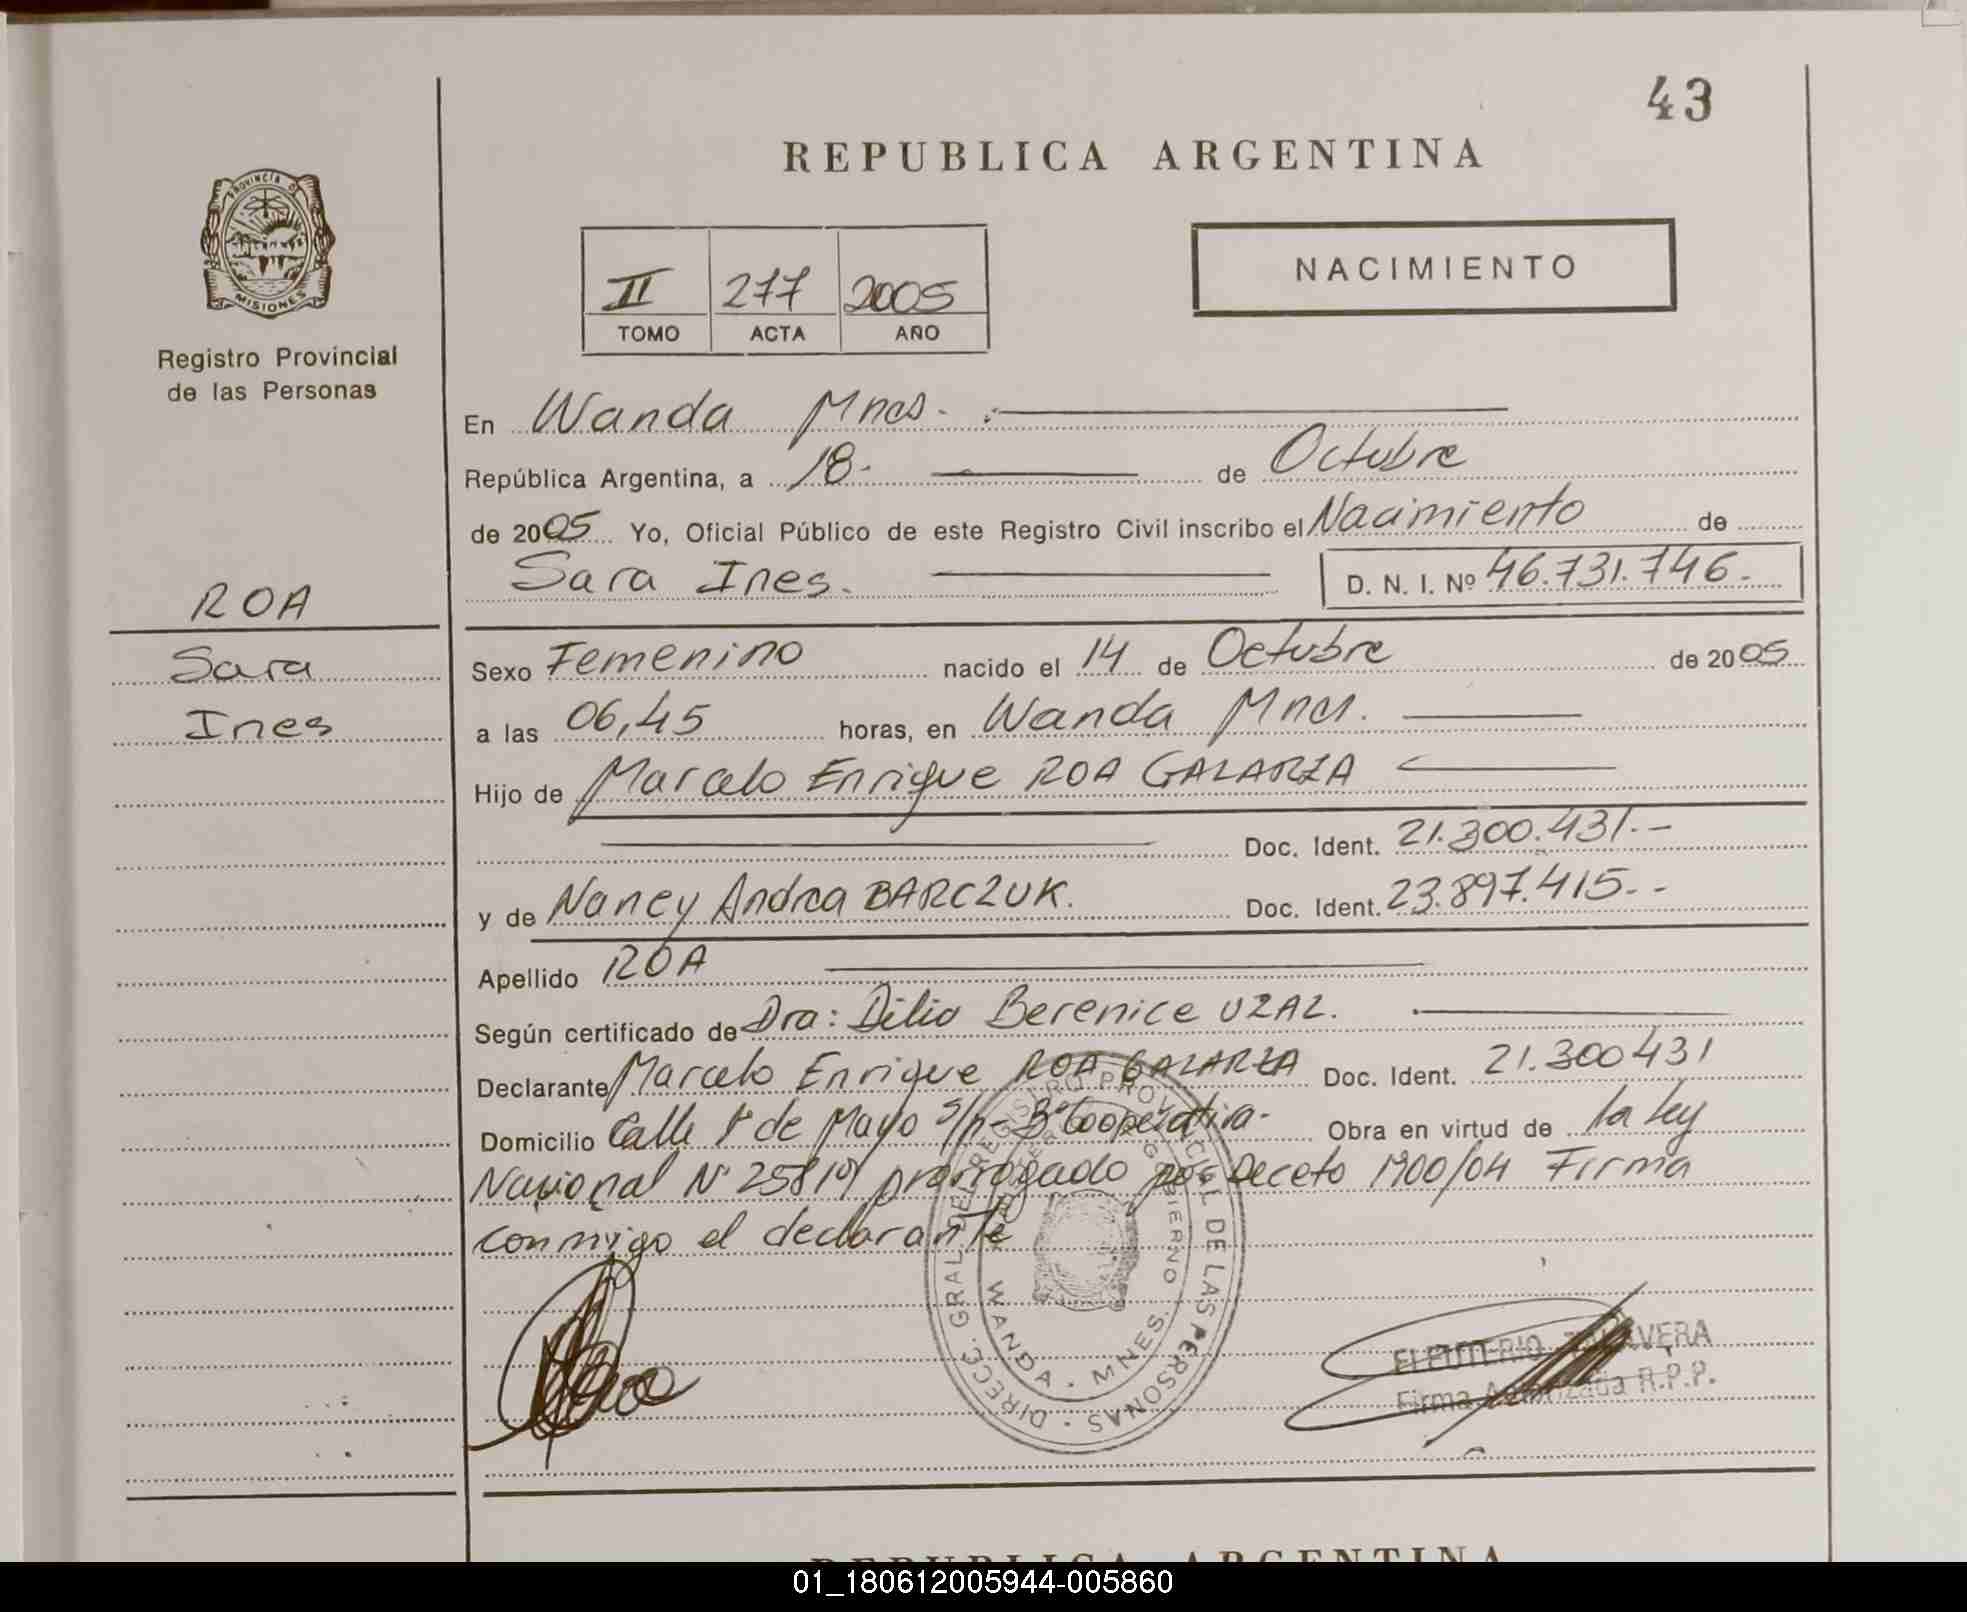 43
REPUBLICA ARGENTINA
PROVINCIA DE
MISIONES
Registro Provincial
de las Personas
II 277 2005
TOMO ACTA AÑO
NACIMIENTO
En Wanda Mnes.
República Argentina, a 18 de Octubre
de 2005 Yo, Oficial Público de este Registro Civil inscribo el Nacimiento de
Sara Ines. D. N. I. Nº 46.731.746.-
ROA
Sara
Ines
Sexo Femenino nacido el 14 de Octubre de 2005
a las 06,45 horas, en Wanda Mnes.
Hijo de Marcelo Enrique ROA GALARZA
Doc. Ident. 21.300.431.-
y de Nancy Andrea BARCZUK. Doc. Ident. 23.897.415.-
Apellido ROA
Según certificado de Dra: Dilia Berenice UZAL.
Declarante Marcelo Enrique ROA GALARZA Doc. Ident. 21.300431
Domicilio Calle 1º de Mayo s/n- Bº Cooperativa- Obra en virtud de la ley
Nacional Nº 25819 prorrogado por Deceto 1900/04 Firma
conmigo el declarante
DIRECC. GRAL. DE REGISTRO PROVINCIAL DE LAS PERSONAS
GOBIERNO
WANDA - MNES.
ELEUTERIO TALAVERA
Firma Autorizada R.P.P.
REPUBLICA ARGENTINA
01_180612005944-005860